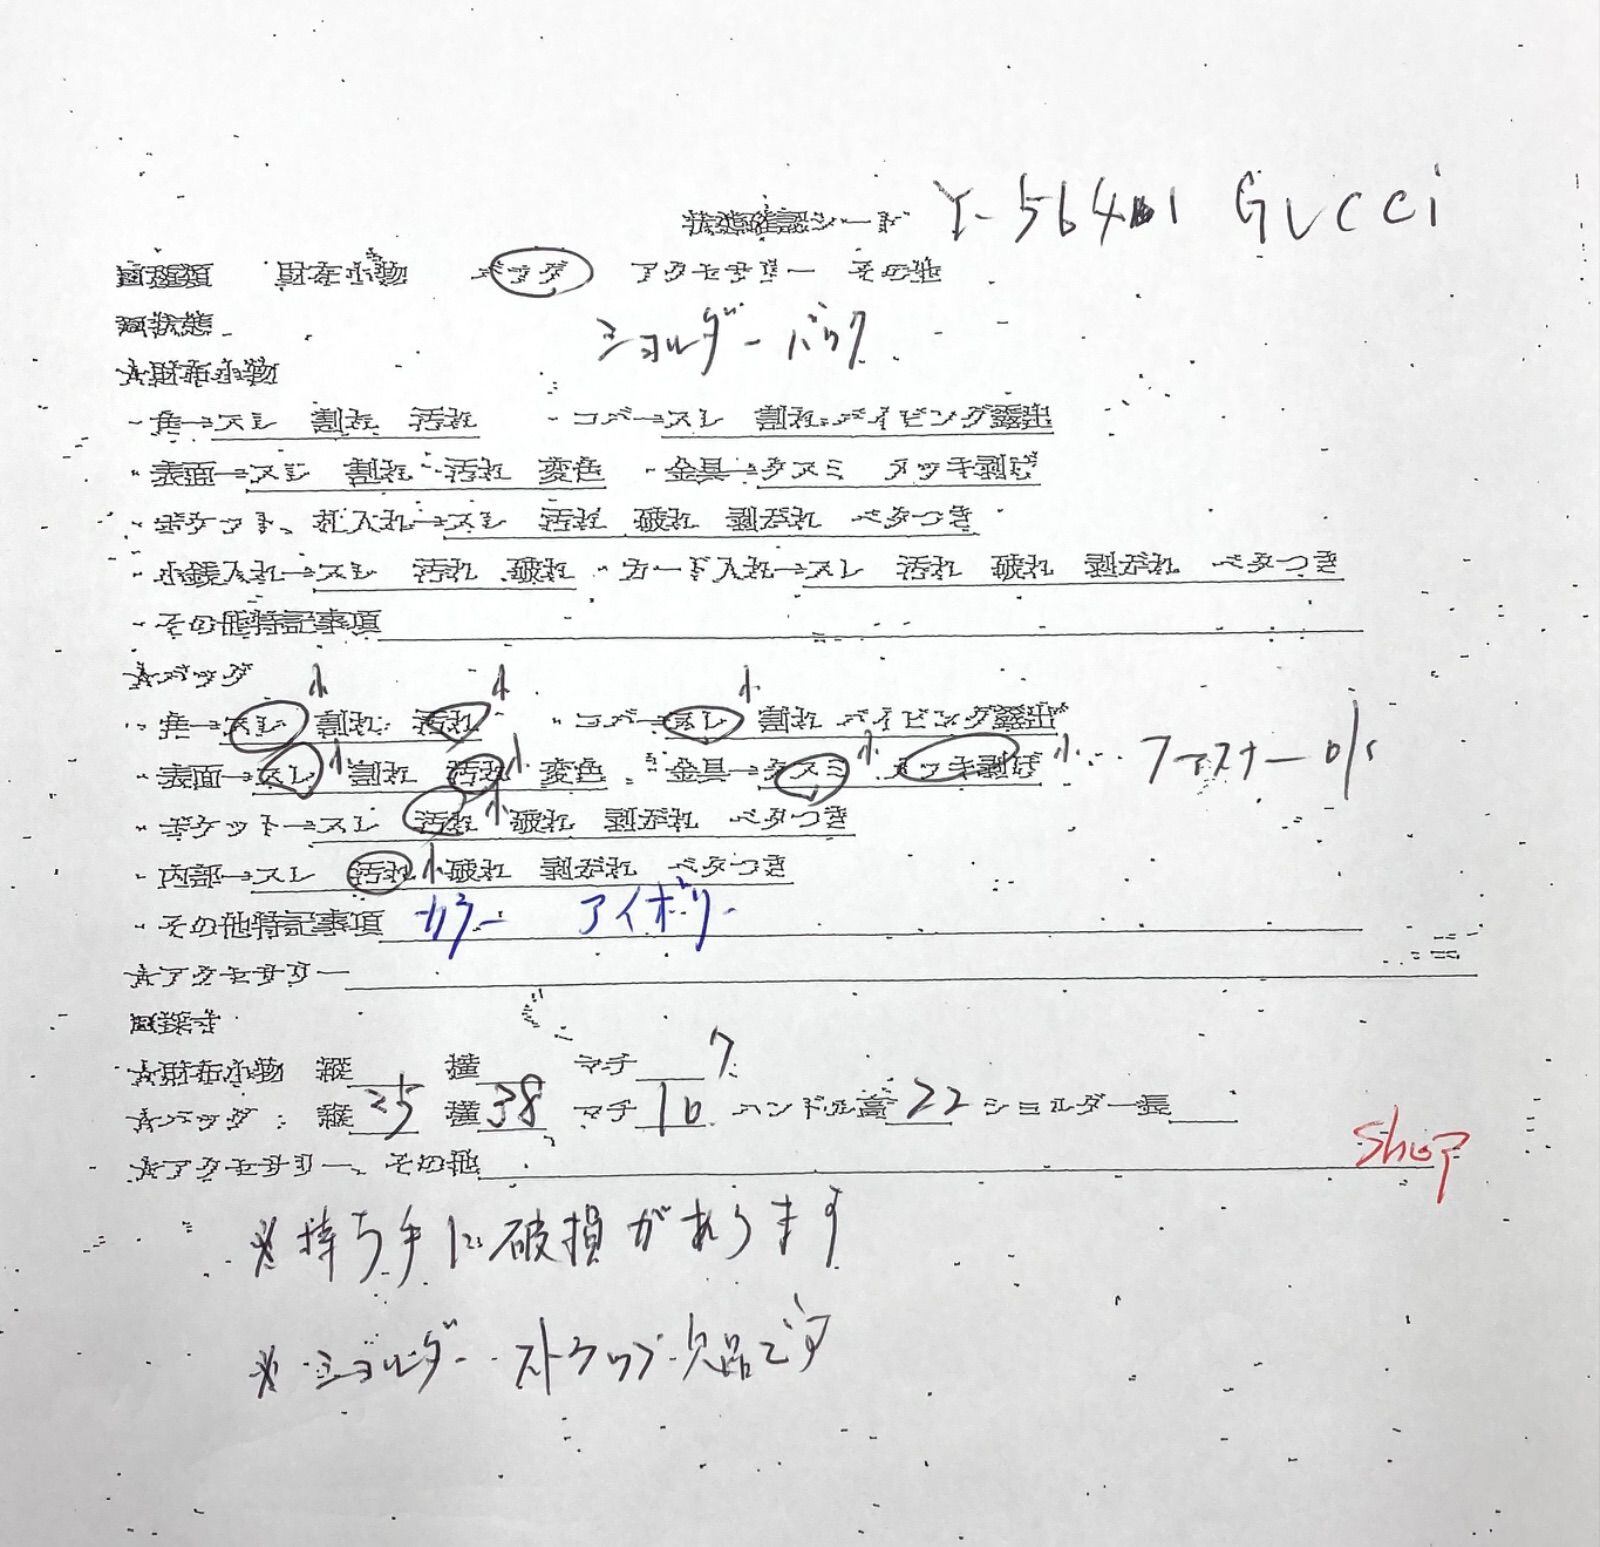 状態確認シート Y-564 1 GUCCI
□種類 財布小物 バッグ アクセサリー その他
□状態 ショルダーバック
☆財布小物
・角→スレ 割れ 汚れ ・コバ→スレ 割れ パイピング露出
・表面→スレ 割れ 汚れ 変色 ・金具→クスミ メッキ剥げ
・ポケット、札入れ→スレ 汚れ 破れ 剥がれ ベタつき
・小銭入れ→スレ 汚れ 破れ ・カード入れ→スレ 汚れ 破れ 剥がれ ベタつき
・その他特記事項
☆バッグ
小 小 小
・角→スレ 割れ 汚れ ・コバ→スレ 割れ パイピング露出
・表面→スレ小 割れ 汚れ小 変色 ・金具→クスミ小 メッキ剥げ小 ファスナー
・ポケット→スレ 汚れ小 破れ 剥がれ ベタつき
・内部→スレ 汚れ小 破れ 剥がれ ベタつき
・その他特記事項 カラー アイボリー
☆アクセサリー
□採寸
☆財布小物 縦 横 マチ 7
☆バッグ 縦25 横38 マチ10 ハンドル高22 ショルダー長
☆アクセサリー、その他 Shop
※持ち手に破損があります
※ショルダーストラップ欠品です